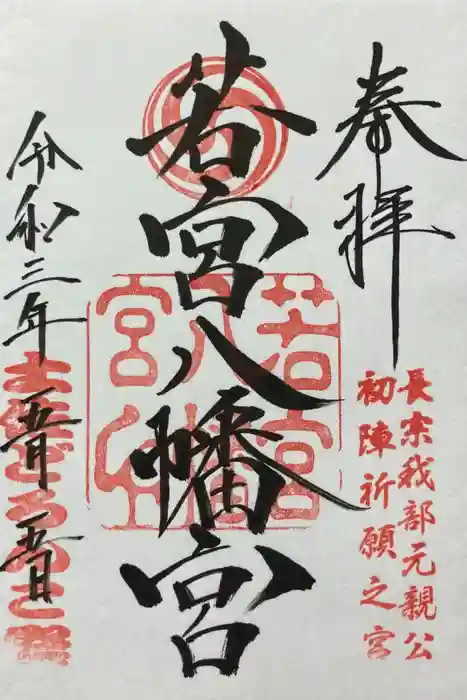 奉拝
長宗我部元親公
初陣祈願之宮
若宮八幡宮
若宮
八幡
宮
令和三年五月五日